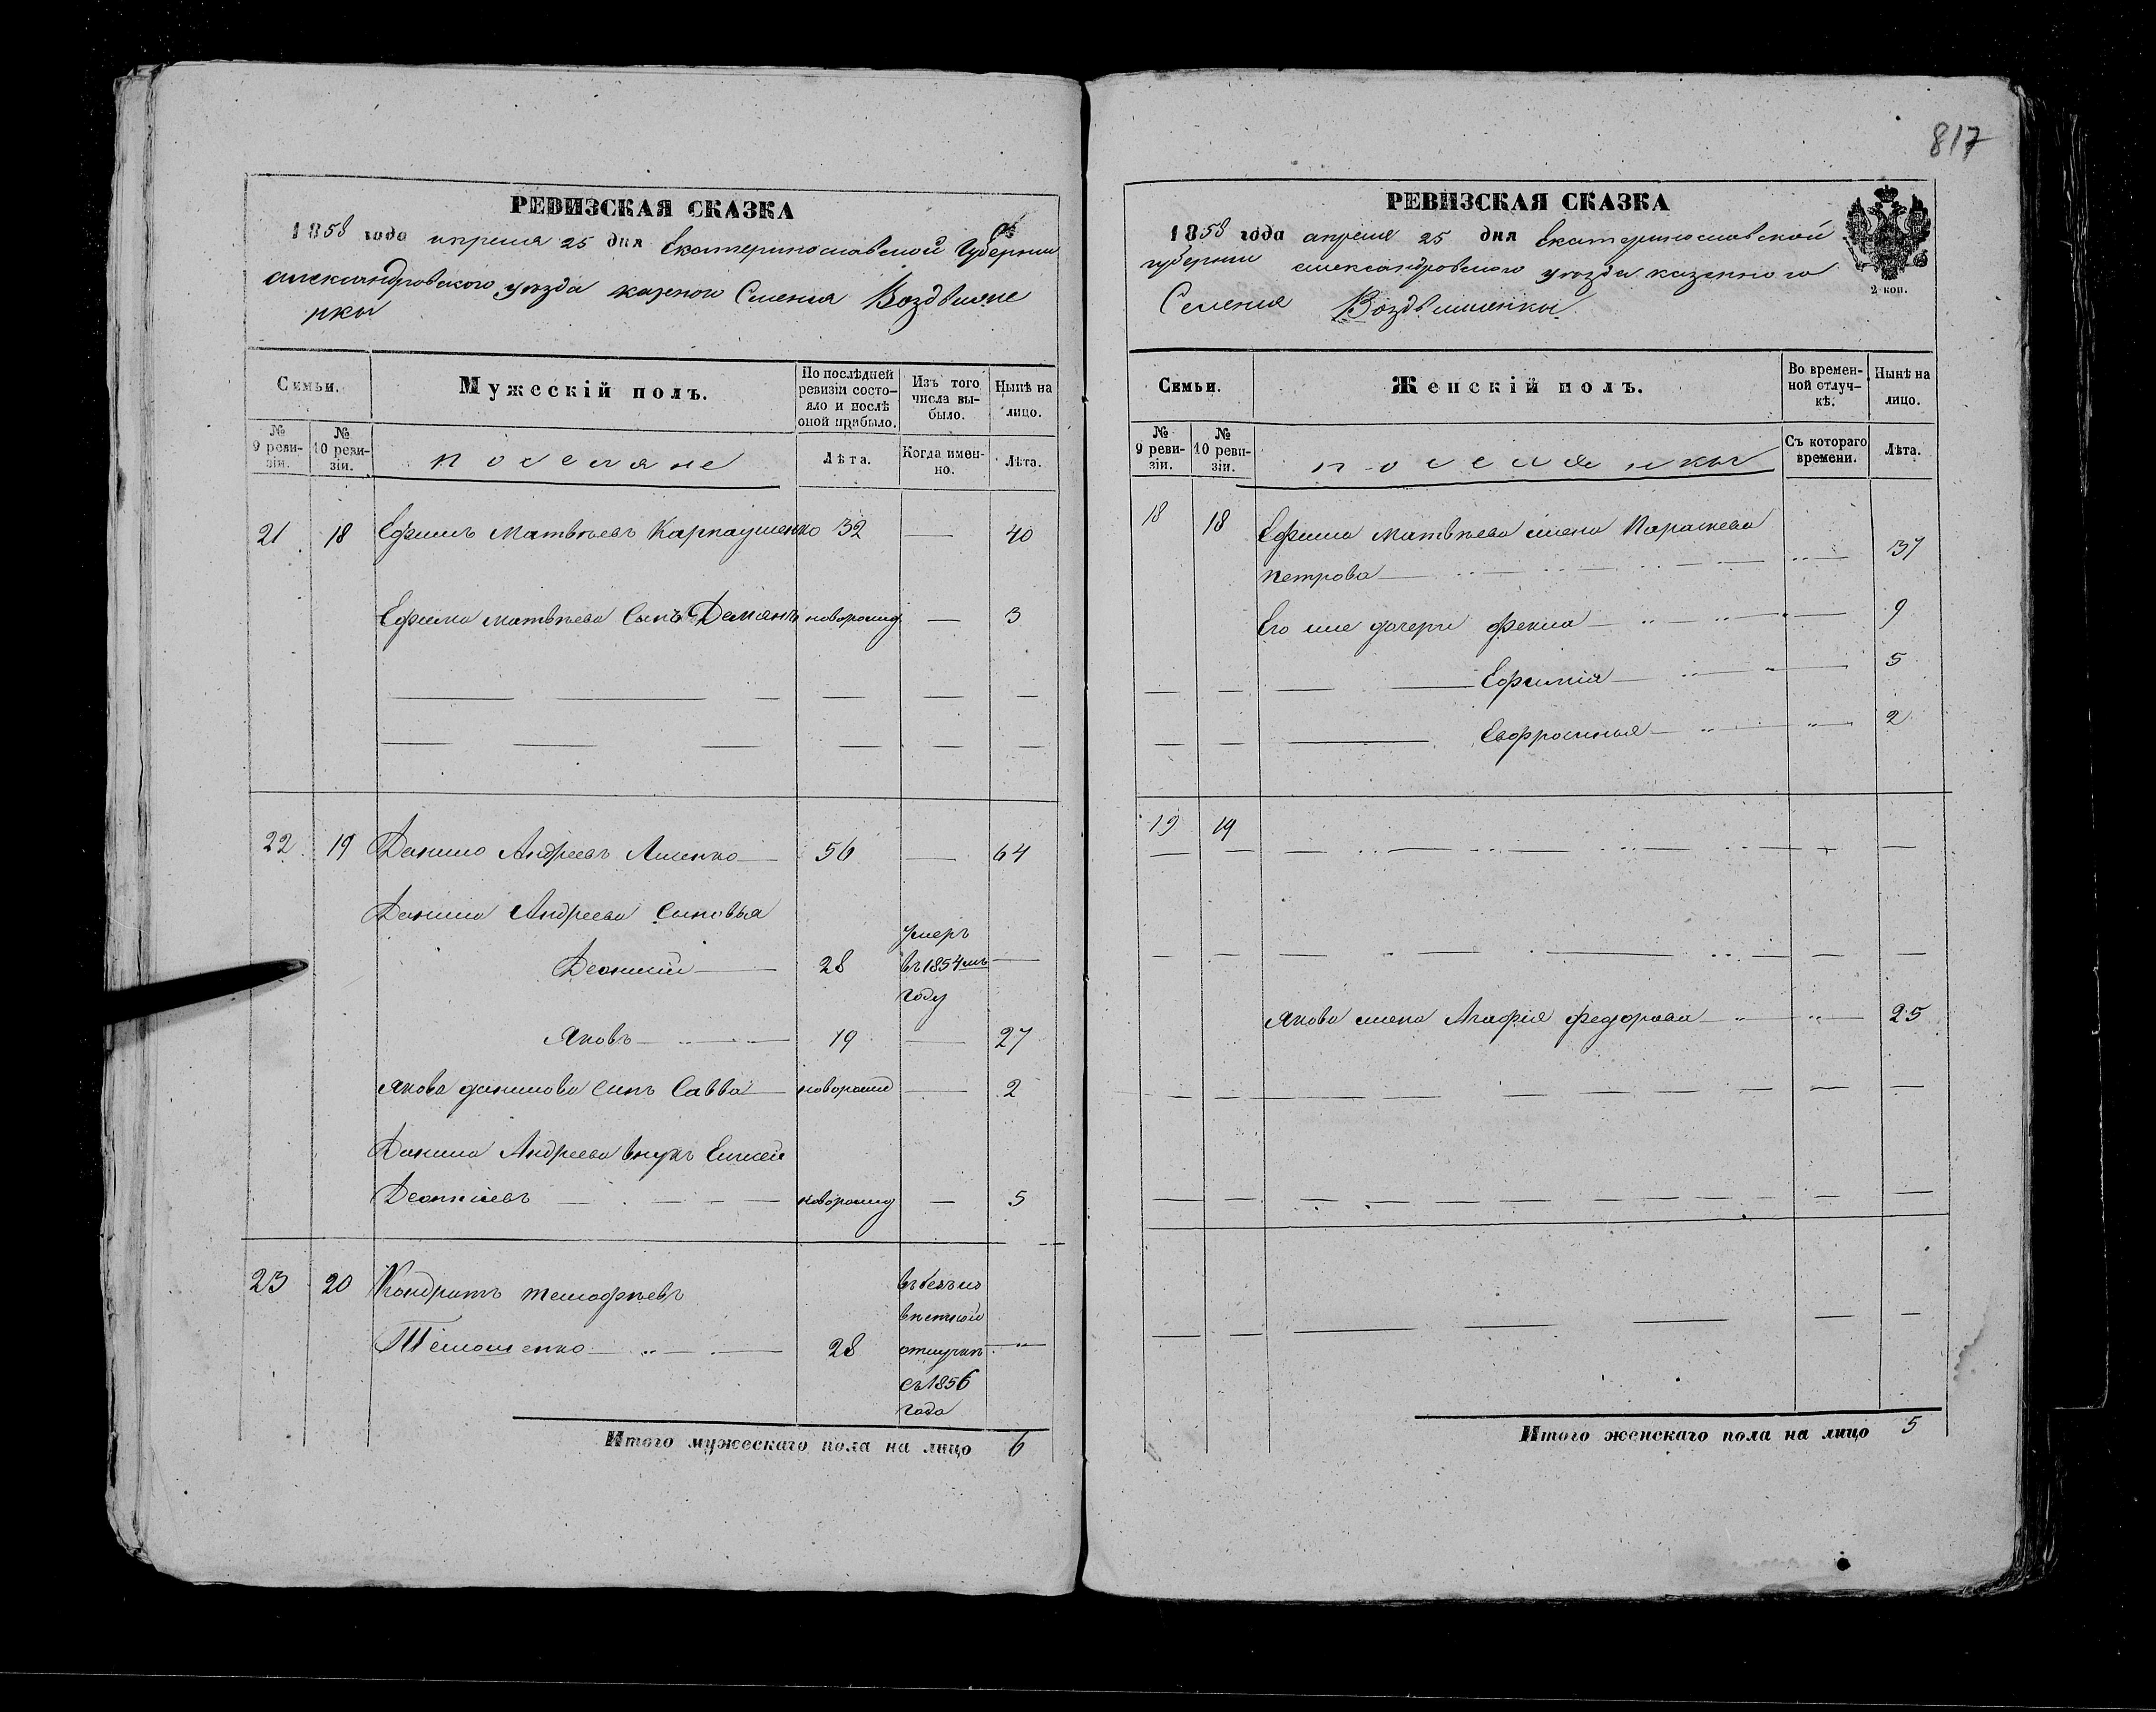 817
РЕВИЗСКАЯ СКАЗКА
1858 года апреля 25 дня Екатеринославской Губернии
александровского уѣзда казеного Селения Воздвиже
нки
Семьи.
Мужескій полъ.
По послѣдней ревизіи состояло и послѣ оной прибыло.
Изъ того числа выбыло.
Нынѣ на лицо.
№ 9 ревизіи.
№ 10 ревизіи.
поселяне
Лѣта.
Когда именно.
Лѣта.
21 18 Ефимъ Матвѣевъ Карпаушенко 32 — 40
Ефима матвѣева Сынъ Демянъ новорожд — 3
22 19 Данило Андреевъ Ляшенко 56 — 64
Данила Андреева Сыновья
умеръ
28 въ 1854мъ
году
Яковъ 19 — 27
Якова данилова Сынъ Савва новорожд — 2
Данила Андреева внукъ
новорожд — 5
23 20 Кондратъ тимофѣевъ
въ безъиз
вѣстной
28 отлучкѣ
съ 1856
года
Итого мужескаго пола на лицо 6
РЕВИЗСКАЯ СКАЗКА
1858 года апреля 25 дня Екатеринославской
губернии александровского уѣзда казенного
Селения Воздвиженки
2 коп.
Семьи.
Женскій полъ.
Во временной отлучкѣ.
Нынѣ на лицо.
№ 9 ревизіи.
№ 10 ревизіи.
поселянки
Съ котораго времени.
Лѣта.
18 18 Ефима Матвѣева жена Параскева
петрова 37
Его же дочери Фекла 9
Ефимія 5
Евфросинья 2
19 19
Якова жена Агафия федорова 25
Итого женскаго пола на лицо 5